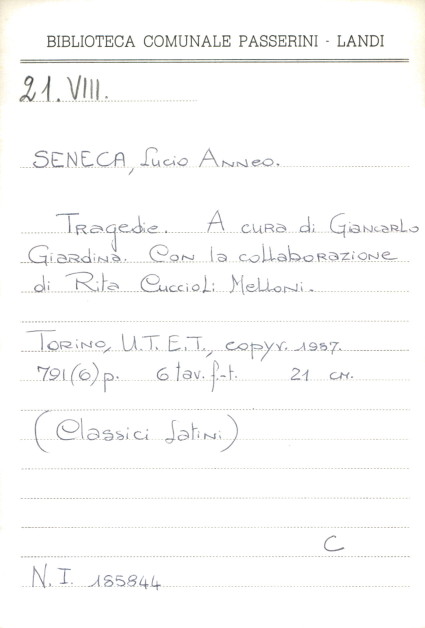 BIBLIOTECA COMUNALE PASSERINI - LANDI
21. VIII.
SENECA, Lucio Anneo.
Tragedie. A cura di Giancarlo
Giardina. Con la collaborazione
di Rita Cuccioli Melloni.
Torino, U.T.E.T., copyr. 1987.
791(6) p. 6 tav. f.-t. 21 cm.
(Classici Latini)
C
N. I. 185844